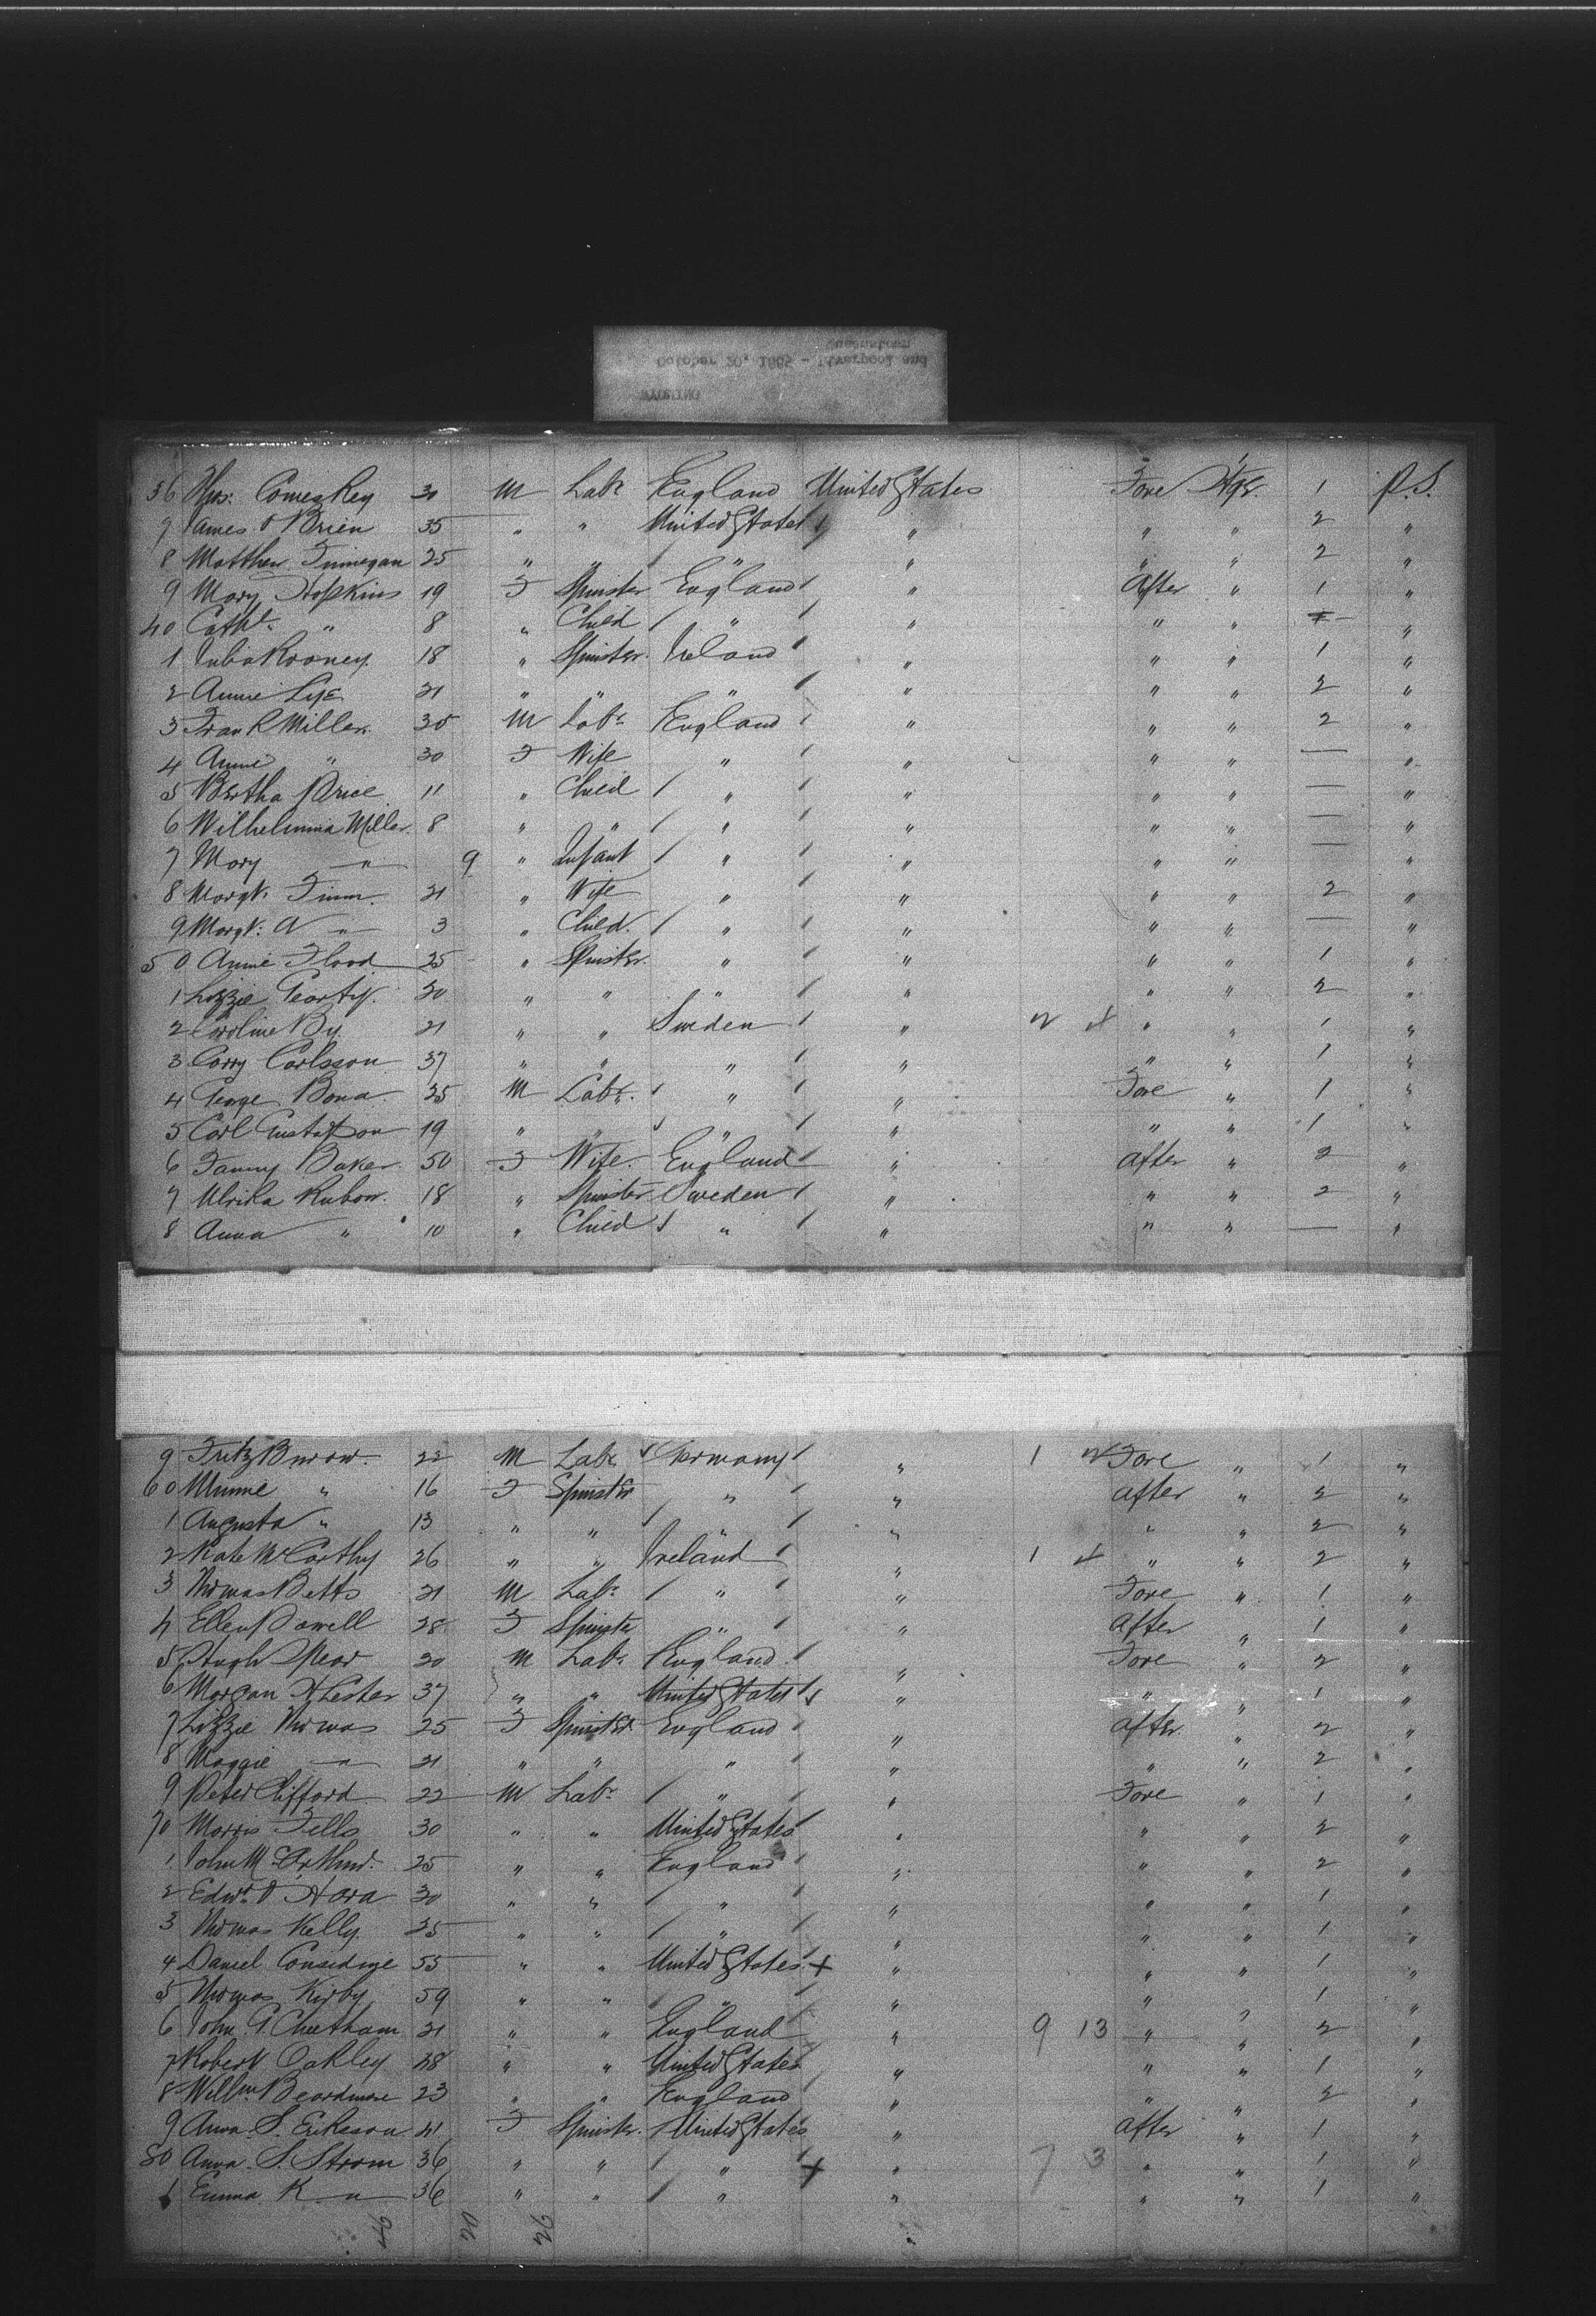 WYOMING
October 20, 1885 - Liverpool and
Queenstown
36 Thos. Comeskey 30 M Labr England United States Fore Stge. 1 P.S.
7 James O'Brien 35 " " United States " " " 2 "
8 Matthew Finnegan 25 " " " " " " 2 "
9 Mary Hopkins 19 F Spinster England " After " 1 "
40 Cathe. " 8 " Child " " " " "
1 Julia Rooney 18 " Spinster Ireland " " " 1 "
2 Annie Lye 21 " " " " " " 2 "
3 Frank Miller 30 M Labr England " " " 2 "
4 Annie " 30 F Wife " " " " — "
5 Bertha Price 11 " Child " " " " — "
6 Wilhelmina Miller 8 " " " " " " — "
7 Mary " 9 " Infant " " " " — "
8 Margt. Finn 21 " Wife " " " " 2 "
9 Margt. A " 3 " Child " " " " — "
50 Annie Flood 25 " Spinster " " " " 1 "
1 Lizzie Gearty 20 " " " " " " 2 "
2 Caroline By 21 " " Sweden " " " 1 "
3 Carry Carlsson 37 " " " " " " 1 "
4 George Bona 35 M Labr. " " Fore " 1 "
5 Carl Gustafson 19 " " " " " " 1 "
6 Fanny Baker 50 F Wife England " After " 2 "
7 Ulrika Rubow 18 " Spinster Sweden " " " 2 "
8 Anna " 10 " Child " " " " — "
9 Fritz Burow 22 M Labr Germany " 1 Fore " 1 "
60 Minnie " 16 F Spinster " " After " 2 "
1 Augusta " 13 " " " " " " 2 "
2 Kate McCarthy 26 " " Ireland " 1 " " 2 "
3 Thomas Betts 21 M Labr " " Fore " 1 "
4 Ellen Powell 28 F Spinster " " After " 1 "
5 Hugh Spear 30 M Labr England " Fore " 2 "
6 Morgan H Lester 37 " " United States " " " 1 "
7 Lizzie Thomas 25 F Spinster England " After " 2 "
8 Maggie " 21 " " " " " " 2 "
9 Peter Clifford 22 M Labr " " Fore " 1 "
70 Morris Fells 30 " " United States " " " 2 "
1 John McArthur 25 " " England " " " 2 "
2 Edwd. O'Hara 30 " " " " " " 1 "
3 Thomas Kelly 25 " " " " " " 1 "
4 Daniel Considine 55 " " United States + " " " 1 "
5 Thomas Kirby 59 " " " " " " 1 "
6 John G Cheetham 21 " " England " 9 13 " " 2 "
7 Robert Oakley 38 " " United States " " " 1 "
8 Willm Beardmore 23 " " England " " " 2 "
9 Anna S. Eriksson 41 F Spinster United States " After " 1 "
80 Anna S. Strom 36 " " " + " 7 3 " " 1 "
1 Emma K " 36 " " " " " " 1 "
20 26